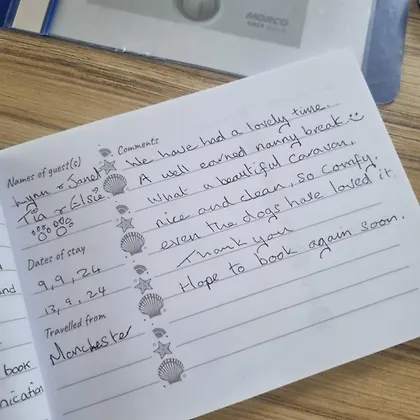 MORCO
Names of guest(s)
Lynn & Janet
Tia & Elsie
Dates of stay
9, 9, 24
13, 9, 24
Travelled from
Manchester
Comments
We have had a lovely time.
A well earned nanny break
What a beautiful caravan,
nice and clean, so comfy.
even the dogs have loved it.
Thank you
Hope to book again soon.
book